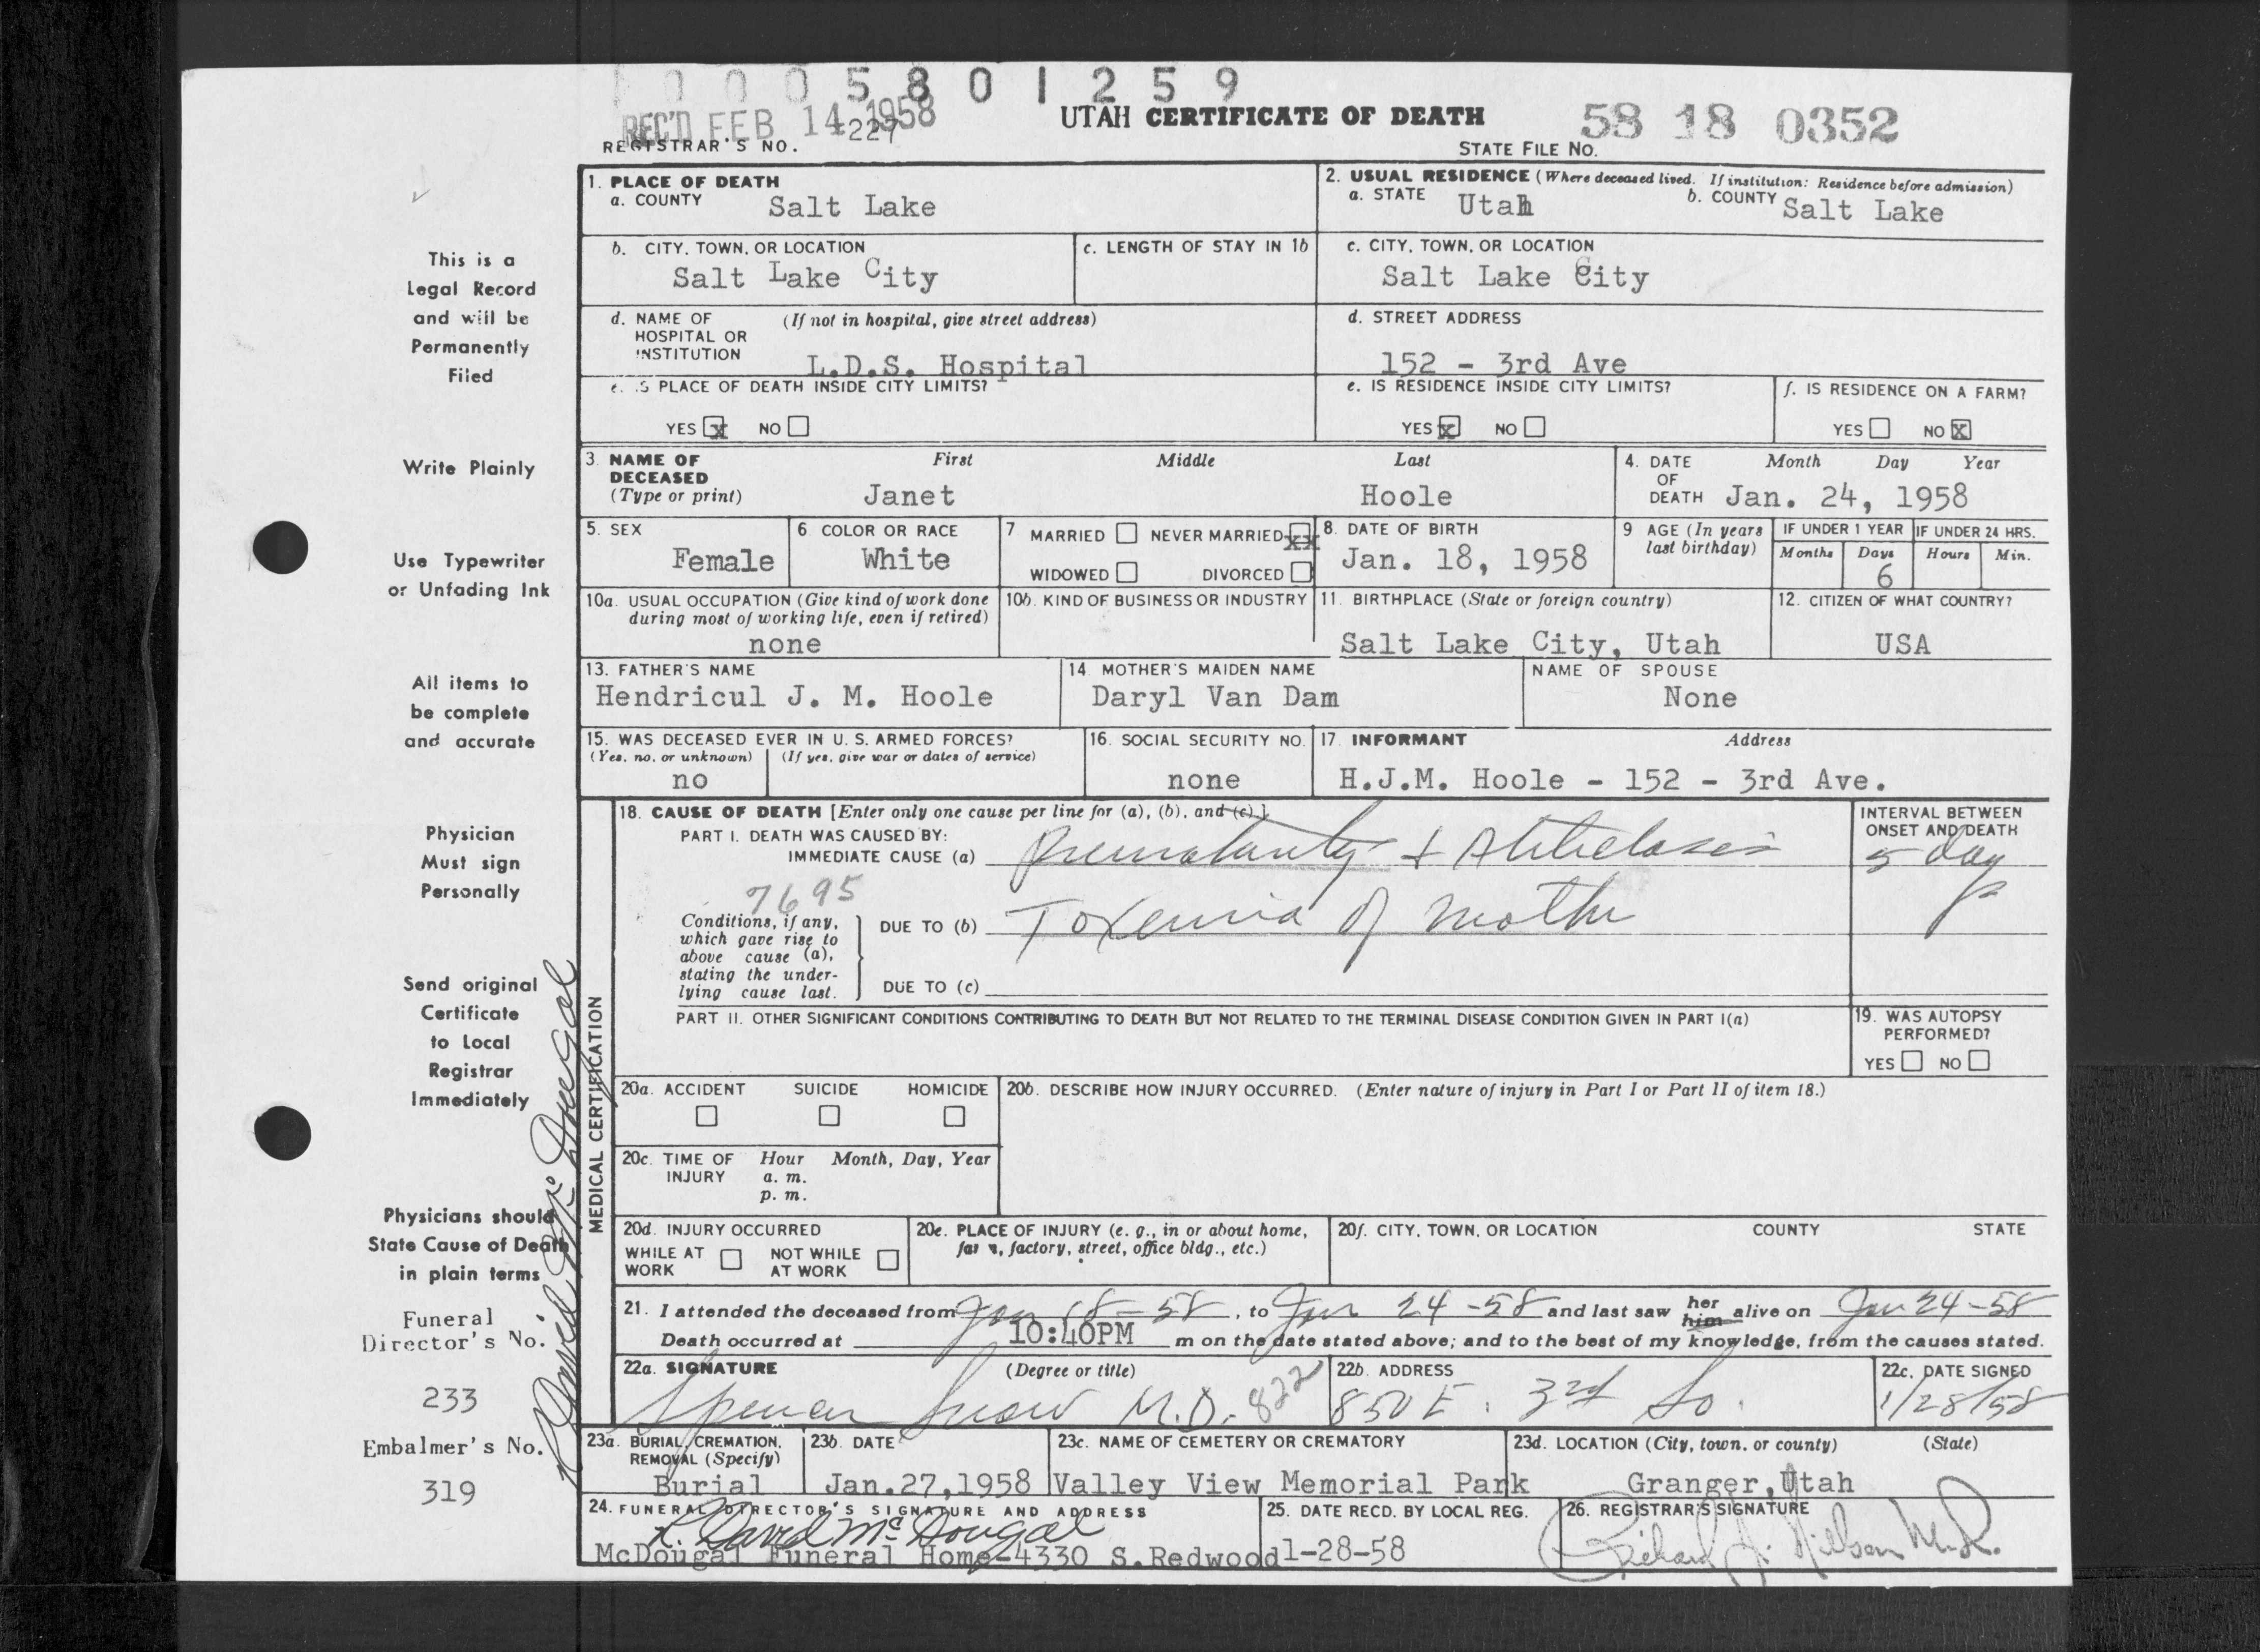 0 0 0 5 8 0 1 2 5 9
REC'D FEB 14 1958
227
UTAH CERTIFICATE OF DEATH
58 18 0352
REGISTRAR'S NO.
STATE FILE NO.
This is a
Legal Record
and will be
Permanently
Filed
Write Plainly
Use Typewriter
or Unfading Ink
All items to
be complete
and accurate
Physician
Must sign
Personally
Send original
Certificate
to Local
Registrar
Immediately
Physicians should
State Cause of Death
in plain terms
Funeral
Director's No.
233
Embalmer's No.
319
R. David McDougal
1. PLACE OF DEATH
a. COUNTY Salt Lake
2. USUAL RESIDENCE (Where deceased lived. If institution: Residence before admission)
a. STATE Utah b. COUNTY Salt Lake
b. CITY, TOWN, OR LOCATION
Salt Lake City
c. LENGTH OF STAY IN 1b
c. CITY, TOWN, OR LOCATION
Salt Lake City
d. NAME OF (If not in hospital, give street address)
HOSPITAL OR
INSTITUTION L.D.S. Hospital
d. STREET ADDRESS
152 - 3rd Ave
e. IS PLACE OF DEATH INSIDE CITY LIMITS?
YES X NO
e. IS RESIDENCE INSIDE CITY LIMITS?
YES X NO
f. IS RESIDENCE ON A FARM?
YES NO X
3. NAME OF First Middle Last
DECEASED
(Type or print) Janet Hoole
4. DATE Month Day Year
OF
DEATH Jan. 24, 1958
5. SEX
Female
6 COLOR OR RACE
White
7 MARRIED NEVER MARRIED XX
WIDOWED DIVORCED
8. DATE OF BIRTH
Jan. 18, 1958
9 AGE (In years
last birthday)
IF UNDER 1 YEAR IF UNDER 24 HRS.
Months Days Hours Min.
6
10a. USUAL OCCUPATION (Give kind of work done
during most of working life, even if retired)
none
10b. KIND OF BUSINESS OR INDUSTRY
11. BIRTHPLACE (State or foreign country)
Salt Lake City, Utah
12. CITIZEN OF WHAT COUNTRY?
USA
13. FATHER'S NAME
Hendricul J. M. Hoole
14 MOTHER'S MAIDEN NAME
Daryl Van Dam
NAME OF SPOUSE
None
15. WAS DECEASED EVER IN U. S. ARMED FORCES?
(Yes, no, or unknown) (If yes, give war or dates of service)
no
16. SOCIAL SECURITY NO.
none
17. INFORMANT Address
H.J.M. Hoole - 152 - 3rd Ave.
MEDICAL CERTIFICATION
18. CAUSE OF DEATH [Enter only one cause per line for (a), (b), and (c).]
PART I. DEATH WAS CAUSED BY:
IMMEDIATE CAUSE (a) Prematurity + Atelectasis
INTERVAL BETWEEN
ONSET AND DEATH
5 days
7695
Conditions, if any,
which gave rise to
above cause (a),
stating the under-
lying cause last.
DUE TO (b) Toxemia of Mother
DUE TO (c)
PART II. OTHER SIGNIFICANT CONDITIONS CONTRIBUTING TO DEATH BUT NOT RELATED TO THE TERMINAL DISEASE CONDITION GIVEN IN PART I(a)
19. WAS AUTOPSY
PERFORMED?
YES NO
20a. ACCIDENT SUICIDE HOMICIDE
20b. DESCRIBE HOW INJURY OCCURRED. (Enter nature of injury in Part I or Part II of item 18.)
20c. TIME OF Hour Month, Day, Year
INJURY a. m.
p. m.
20d. INJURY OCCURRED
WHILE AT NOT WHILE
WORK AT WORK
20e. PLACE OF INJURY (e. g., in or about home,
farm, factory, street, office bldg., etc.)
20f. CITY, TOWN, OR LOCATION COUNTY STATE
21. I attended the deceased from Jan 18-58, to Jan 24-58 and last saw her him alive on Jan 24-58
Death occurred at 10:40PM m on the date stated above; and to the best of my knowledge, from the causes stated.
22a. SIGNATURE (Degree or title)
Spencer Snow M.D. 822
22b. ADDRESS
850 E. 3rd So.
22c. DATE SIGNED
1/28/58
23a. BURIAL, CREMATION,
REMOVAL (Specify)
Burial
23b. DATE
Jan.27,1958
23c. NAME OF CEMETERY OR CREMATORY
Valley View Memorial Park
23d. LOCATION (City, town, or county) (State)
Granger, Utah
24. FUNERAL DIRECTOR'S SIGNATURE AND ADDRESS
R. David McDougal
McDougal Funeral Home-4330 S.Redwood
25. DATE RECD. BY LOCAL REG.
1-28-58
26. REGISTRAR'S SIGNATURE
Richard J. Nilson M.D.